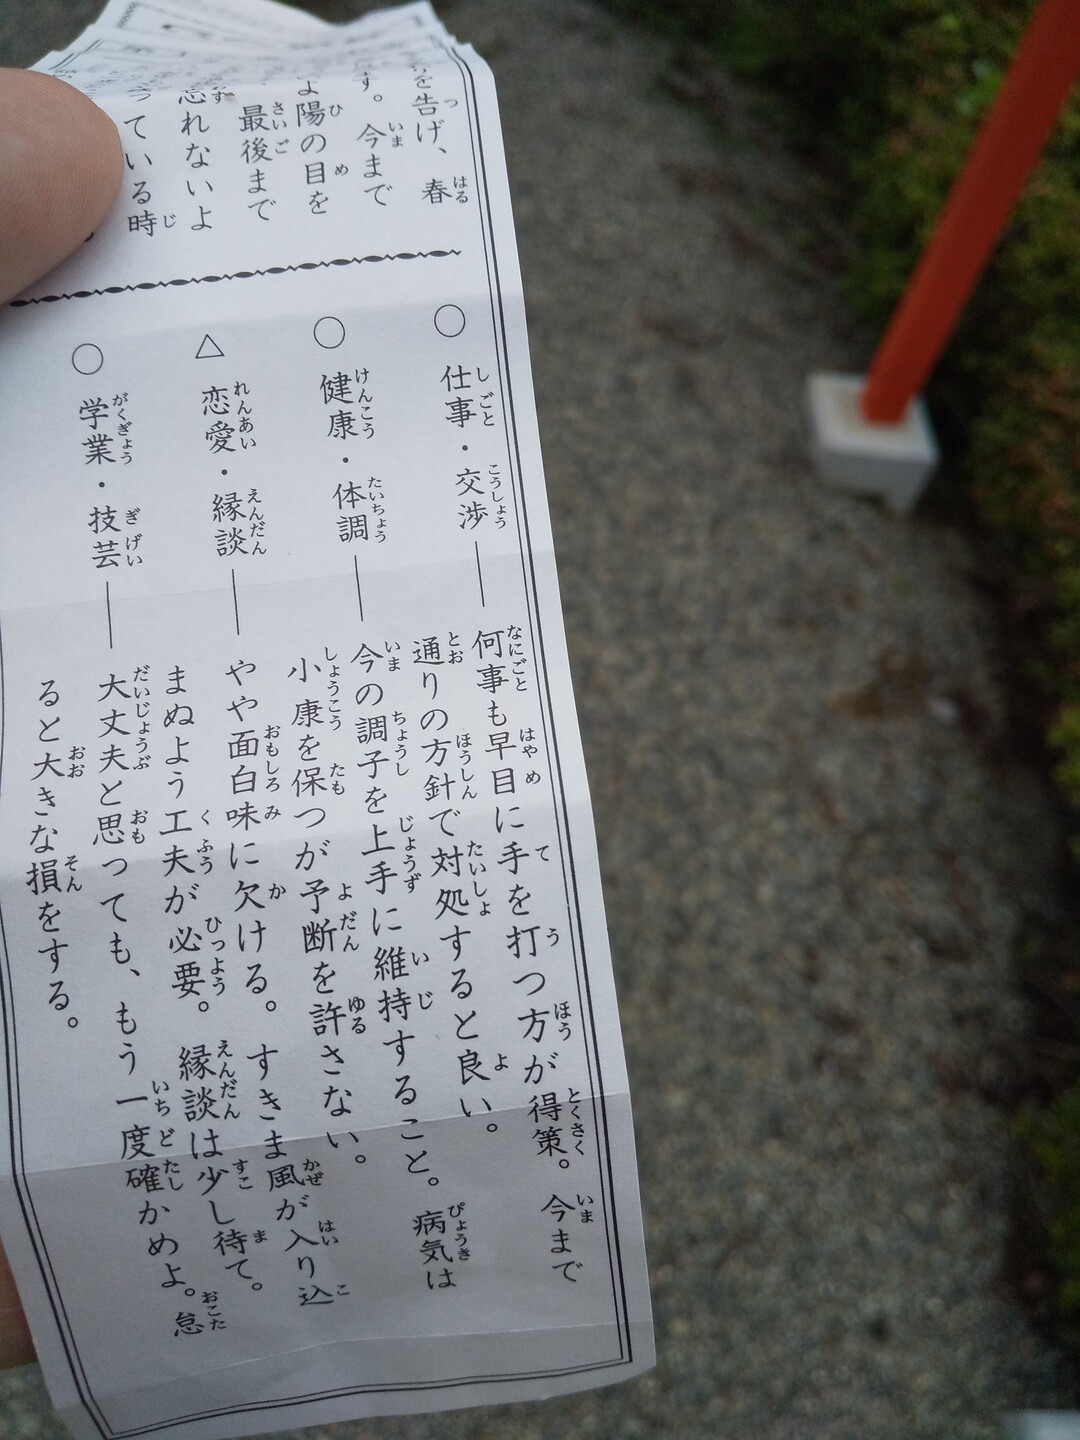 を告げ、春
す。今まで
よ陽の目を
最後まで
忘れないよ
っている時
○仕事・交渉――何事も早目に手を打つ方が得策。今まで
通りの方針で対処すると良い。
○健康・体調――今の調子を上手に維持すること。病気は
小康を保つが予断を許さない。
△恋愛・縁談――やや面白味に欠ける。すきま風が入り込
まぬよう工夫が必要。縁談は少し待て。
○学業・技芸――大丈夫と思っても、もう一度確かめよ。怠
ると大きな損をする。